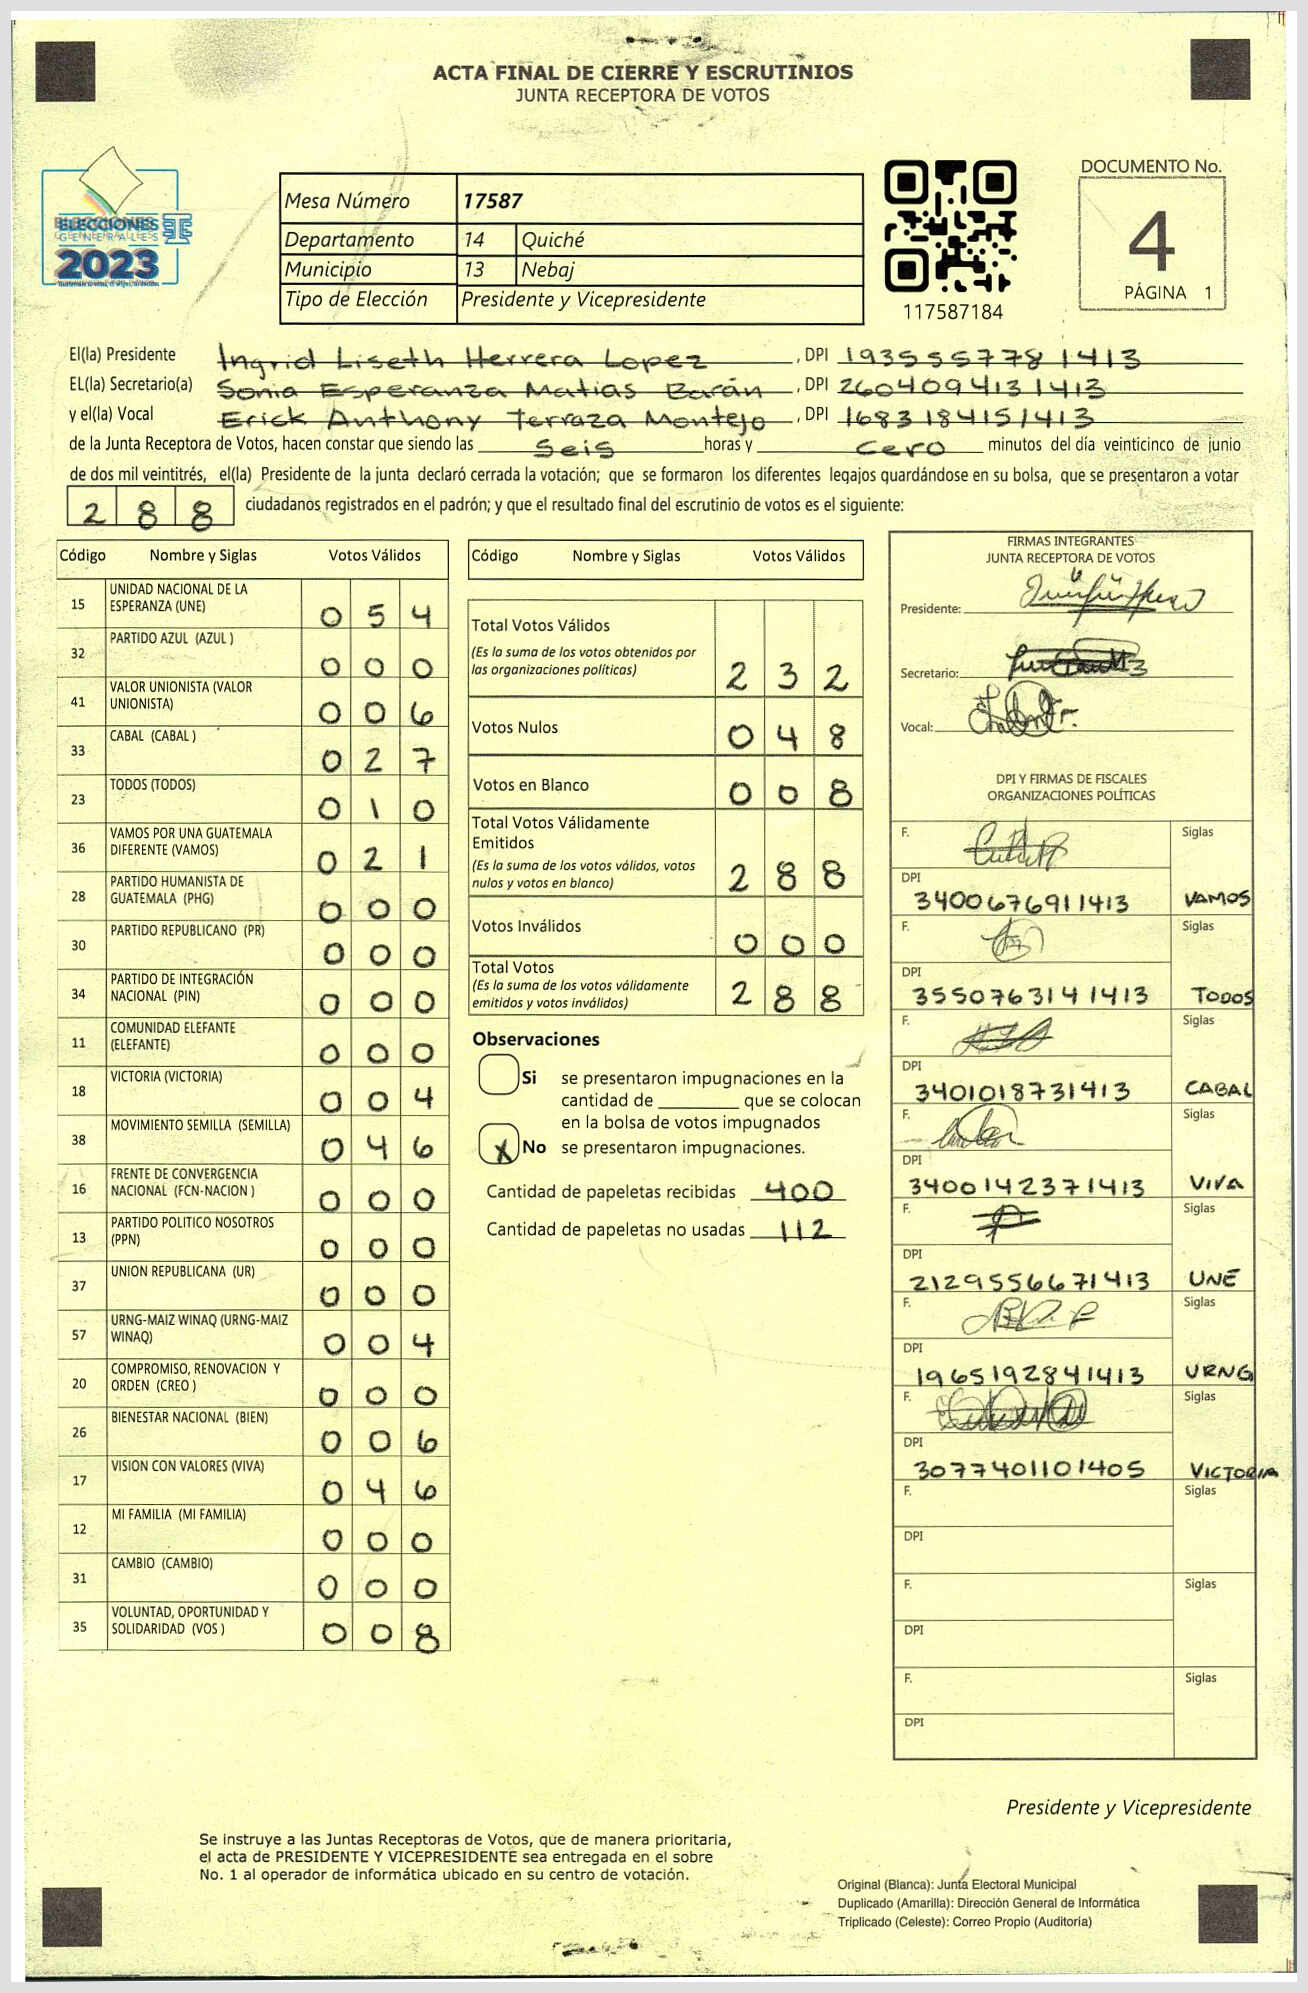 ACTA FINAL DE CIERRE Y ESCRUTINIOS
JUNTA RECEPTORA DE VOTOS
ELECCIONES
GENERALES
2023
Mesa Número 17587
Departamento 14 Quiché
Municipio 13 Nebaj
Tipo de Elección Presidente y Vicepresidente
117587184
DOCUMENTO No.
4
PÁGINA 1
El(la) Presidente Ingrid Liseth Herrera Lopez , DPI 1935557781413
EL(la) Secretario(a) Sonia Esperanza Matias Barán , DPI 2604094131413
y el(la) Vocal Erick Anthony Terraza Montejo , DPI 1683184151413
de la Junta Receptora de Votos, hacen constar que siendo las Seis horas y Cero minutos del día veinticinco de junio
de dos mil veintitrés, el(la) Presidente de la junta declaró cerrada la votación; que se formaron los diferentes legajos guardándose en su bolsa, que se presentaron a votar
288 ciudadanos registrados en el padrón; y que el resultado final del escrutinio de votos es el siguiente:
Código Nombre y Siglas Votos Válidos
15 UNIDAD NACIONAL DE LA
ESPERANZA (UNE) 054
32 PARTIDO AZUL (AZUL ) 000
41 VALOR UNIONISTA (VALOR
UNIONISTA) 006
33 CABAL (CABAL ) 027
23 TODOS (TODOS) 010
36 VAMOS POR UNA GUATEMALA
DIFERENTE (VAMOS) 021
28 PARTIDO HUMANISTA DE
GUATEMALA (PHG) 000
30 PARTIDO REPUBLICANO (PR) 000
34 PARTIDO DE INTEGRACIÓN
NACIONAL (PIN) 000
11 COMUNIDAD ELEFANTE
(ELEFANTE) 000
18 VICTORIA (VICTORIA) 004
38 MOVIMIENTO SEMILLA (SEMILLA) 046
16 FRENTE DE CONVERGENCIA
NACIONAL (FCN-NACION ) 000
13 PARTIDO POLITICO NOSOTROS
(PPN) 000
37 UNION REPUBLICANA (UR) 000
57 URNG-MAIZ WINAQ (URNG-MAIZ
WINAQ) 004
20 COMPROMISO, RENOVACION Y
ORDEN (CREO ) 000
26 BIENESTAR NACIONAL (BIEN) 006
17 VISION CON VALORES (VIVA) 046
12 MI FAMILIA (MI FAMILIA) 000
31 CAMBIO (CAMBIO) 000
35 VOLUNTAD, OPORTUNIDAD Y
SOLIDARIDAD (VOS ) 008
Código Nombre y Siglas Votos Válidos
Total Votos Válidos
(Es la suma de los votos obtenidos por
las organizaciones políticas) 232
Votos Nulos 048
Votos en Blanco 008
Total Votos Válidamente
Emitidos
(Es la suma de los votos válidos, votos
nulos y votos en blanco) 288
Votos Inválidos 000
Total Votos
(Es la suma de los votos válidamente
emitidos y votos inválidos) 288
Observaciones
Si se presentaron impugnaciones en la
cantidad de ________ que se colocan
en la bolsa de votos impugnados
X No se presentaron impugnaciones.
Cantidad de papeletas recibidas 400
Cantidad de papeletas no usadas 112
FIRMAS INTEGRANTES
JUNTA RECEPTORA DE VOTOS
Presidente:
Secretario:
Vocal:
DPI Y FIRMAS DE FISCALES
ORGANIZACIONES POLÍTICAS
F. Siglas
DPI
3400676911413 VAMOS
F. Siglas
DPI
3550763141413 TODOS
F. Siglas
DPI
3401018731413 CABAL
F. Siglas
DPI
3400142371413 VIVA
F. Siglas
DPI
2129556671413 UNE
F. Siglas
DPI
1965192841413 URNG
F. Siglas
DPI
3077401101405 VICTORIA
F. Siglas
DPI
F. Siglas
DPI
F. Siglas
DPI
Presidente y Vicepresidente
Se instruye a las Juntas Receptoras de Votos, que de manera prioritaria,
el acta de PRESIDENTE Y VICEPRESIDENTE sea entregada en el sobre
No. 1 al operador de informática ubicado en su centro de votación.
Original (Blanca): Junta Electoral Municipal
Duplicado (Amarilla): Dirección General de Informática
Triplicado (Celeste): Correo Propio (Auditoría)